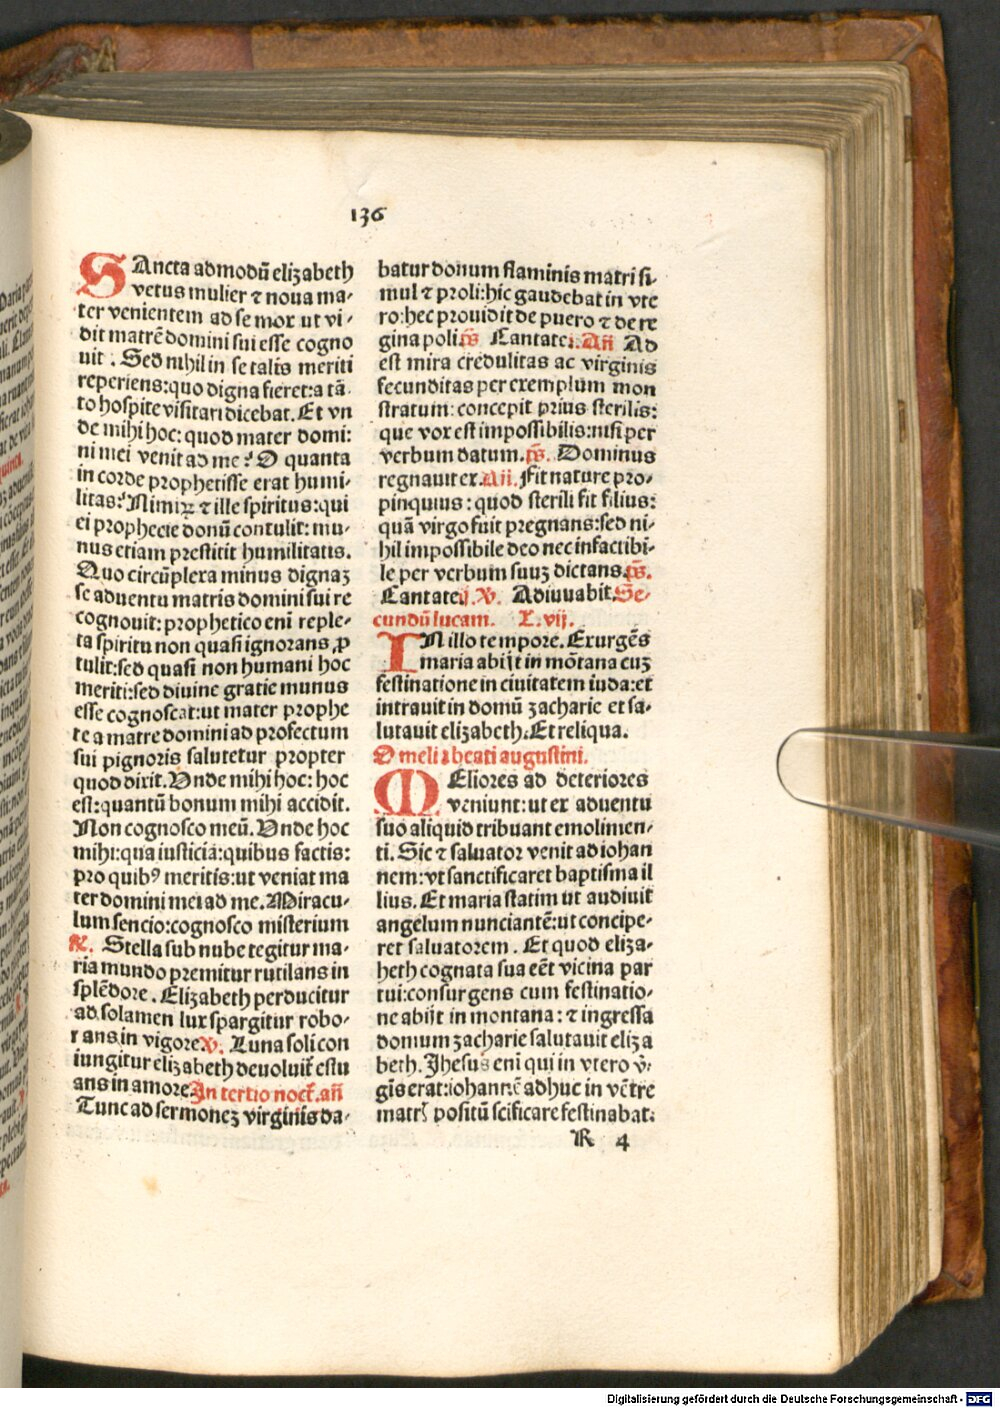 136
SAncta admodū elizabeth
vetus mulier ⁊ noua ma-
ter venientem ad se mox ut vi-
dit matrē domini sui esse cogno
uit. Sed nihil in se talis meriti
reperiens: quo digna fieret: a tā
to hospite visitari dicebat. Et vn
de mihi hoc: quod mater domi:
ni mei venit ad me? O quanta
in corde prophetisse erat humi-
litas? Nimiꝝ ⁊ ille spiritus: qui
ei prophecie donū contulit: mu-
nus etiam prestitit humilitatis.
Quo circūplexa minus dignaꝫ
se aduentu matris domini sui re
cognouit: prophetico eni reple-
ta spiritu non quasi ignorans ꝓ
tulit: sed quasi non humani hoc
meriti: sed diuine gratie munus
esse cognoscat: ut mater prophe
te a matre domini ad profectum
sui pignoris salutetur propter
quod dixit. Vnde mihi hoc: hoc
est: quantū bonum mihi accidit.
Non cognosco meū. Vnde hoc
mihi: qua iusticia: quibus factis:
pro quibꝰ meritis: ut veniat ma
ter domini mei ad me. Miracu-
lum sencio: cognosco misterium
℟. Stella sub nube tegitur ma-
ria mundo premitur rutilans in
splēdore. Elizabeth perducitur
ad solamen lux spargitur robo-
rans in vigore ℣. Luna soli con
iungitur elizabeth deuoluit̄ estu
ans in amore In tertio noct̄. an̄
Tunc ad sermoneꝫ virginis da-
batur donum flaminis matri si-
mul ⁊ proli: hic gaudebat in vte
ro: hec prouidit de puero ⁊ de re
gina poli ps̄ Cantate i. An̄ Ad
est mira credulitas ac virginis
fecunditas per exemplum mon
stratum: concepit prius sterilis:
que vox est impossibilis: nisi per
verbum datum. ps̄. Dominus
regnauit ex. An̄. Fit nature pro-
pinquius: quod sterili fit filius:
quā virgo fuit pregnans: sed ni-
hil impossibile deo nec infactibi-
le per verbum suuꝫ dictans. ps̄.
Cantate ij. ℣. Adiuuabit. Se-
cundū lucam. L. vij.
IN illo tempore. Exurgēs
maria abijt in mōtana cuꝫ
festinatione in ciuitatem iuda: et
intrauit in domū zacharie et sa-
lutauit elizabeth. Et reliqua.
Omelia beati augustini.
MEliores ad deteriores
veniunt: ut ex aduentu
suo aliquid tribuant emolimen-
ti. Sic ⁊ saluator venit ad iohan
nem: vt sanctificaret baptisma il
lius. Et maria statim ut audiuit
angelum nunciantē: ut concipe-
ret saluatorem. Et quod eliza-
beth cognata sua eēt vicina par
tui: consurgens cum festinatio-
ne abijt in montana: ⁊ ingressa
domum zacharie salutauit eliza
beth. Jhesus eni qui in vtero v̄-
gīs erat: iohannē adhuc in vētre
matrꝭ positū scificare festinabat:
R 4
Digitalisierung gefördert durch die Deutsche Forschungsgemeinschaft - DFG